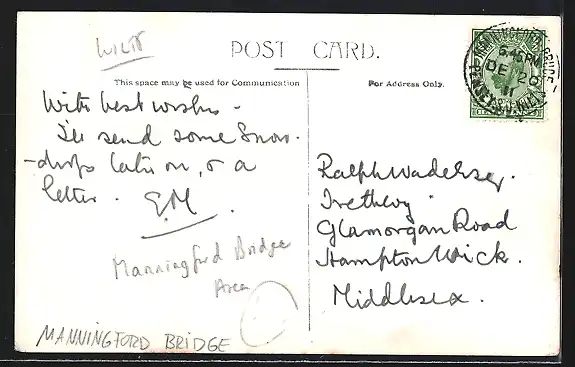 WILTS
POST CARD.
This space may be used for Communication
For Address Only.
With best wishes -
I'll send some Snow-
-drops later on, & a
letter. E.M.
Manningford Bridge
Area
MANNINGFORD BRIDGE
Ralph Wade Esq.
Trethewy
Glamorgan Road
Hampton Wick.
Middlesex.
MANNINGFORD BRUCE
6.45PM
DE 20
11